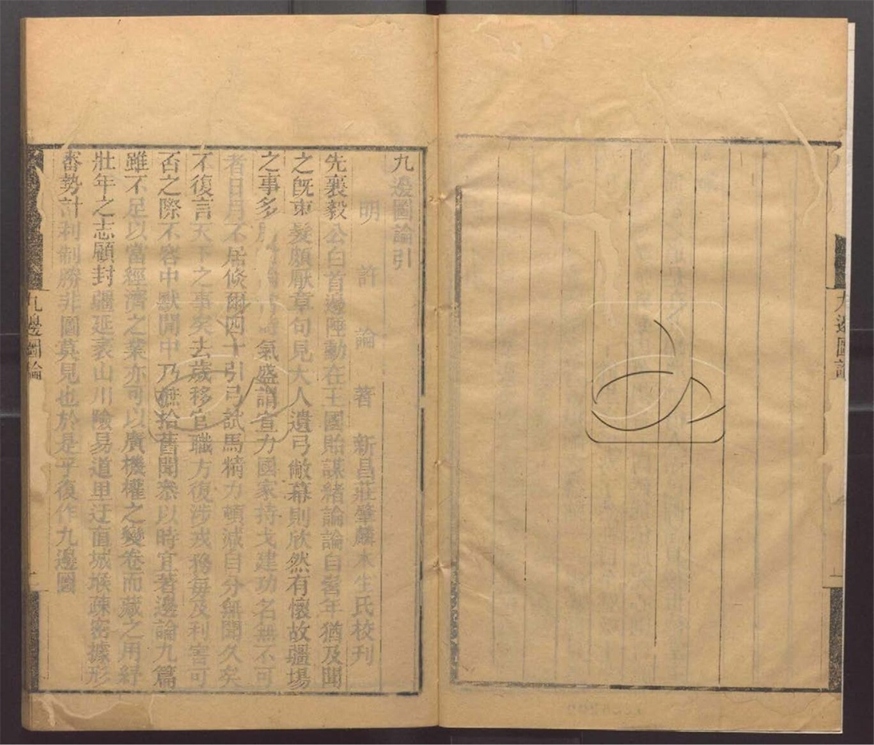 九邊圖論
九邊圖論引
明 許 論 著 新昌莊肇麟木生氏校刊
先襄毅公白首邊陲勳在王國貽謀緒論論自髫年猶及聞
之既束髮頗厭章句見大人遺弓敝幕則欣然有懷故疆埸
之事多 氣盛謂宣力國家持戈建功名無不可
者日月不居倏爾四十引弓試馬精力頓減自分無聞久矣
不復言天下之事矣去歲移官職方復涉戎務每及利害可
否之際不容中默閒中乃樵拾舊聞叅以時宜著邊論九篇
雖不足以當經濟之業亦可以廣機權之變卷而藏之用紓
壯年之志顧封疆延袤山川險易道里迂直城堠疎密據形
審勢計利制勝非圖莫見也於是乎復作九邊圖
九邊圖論